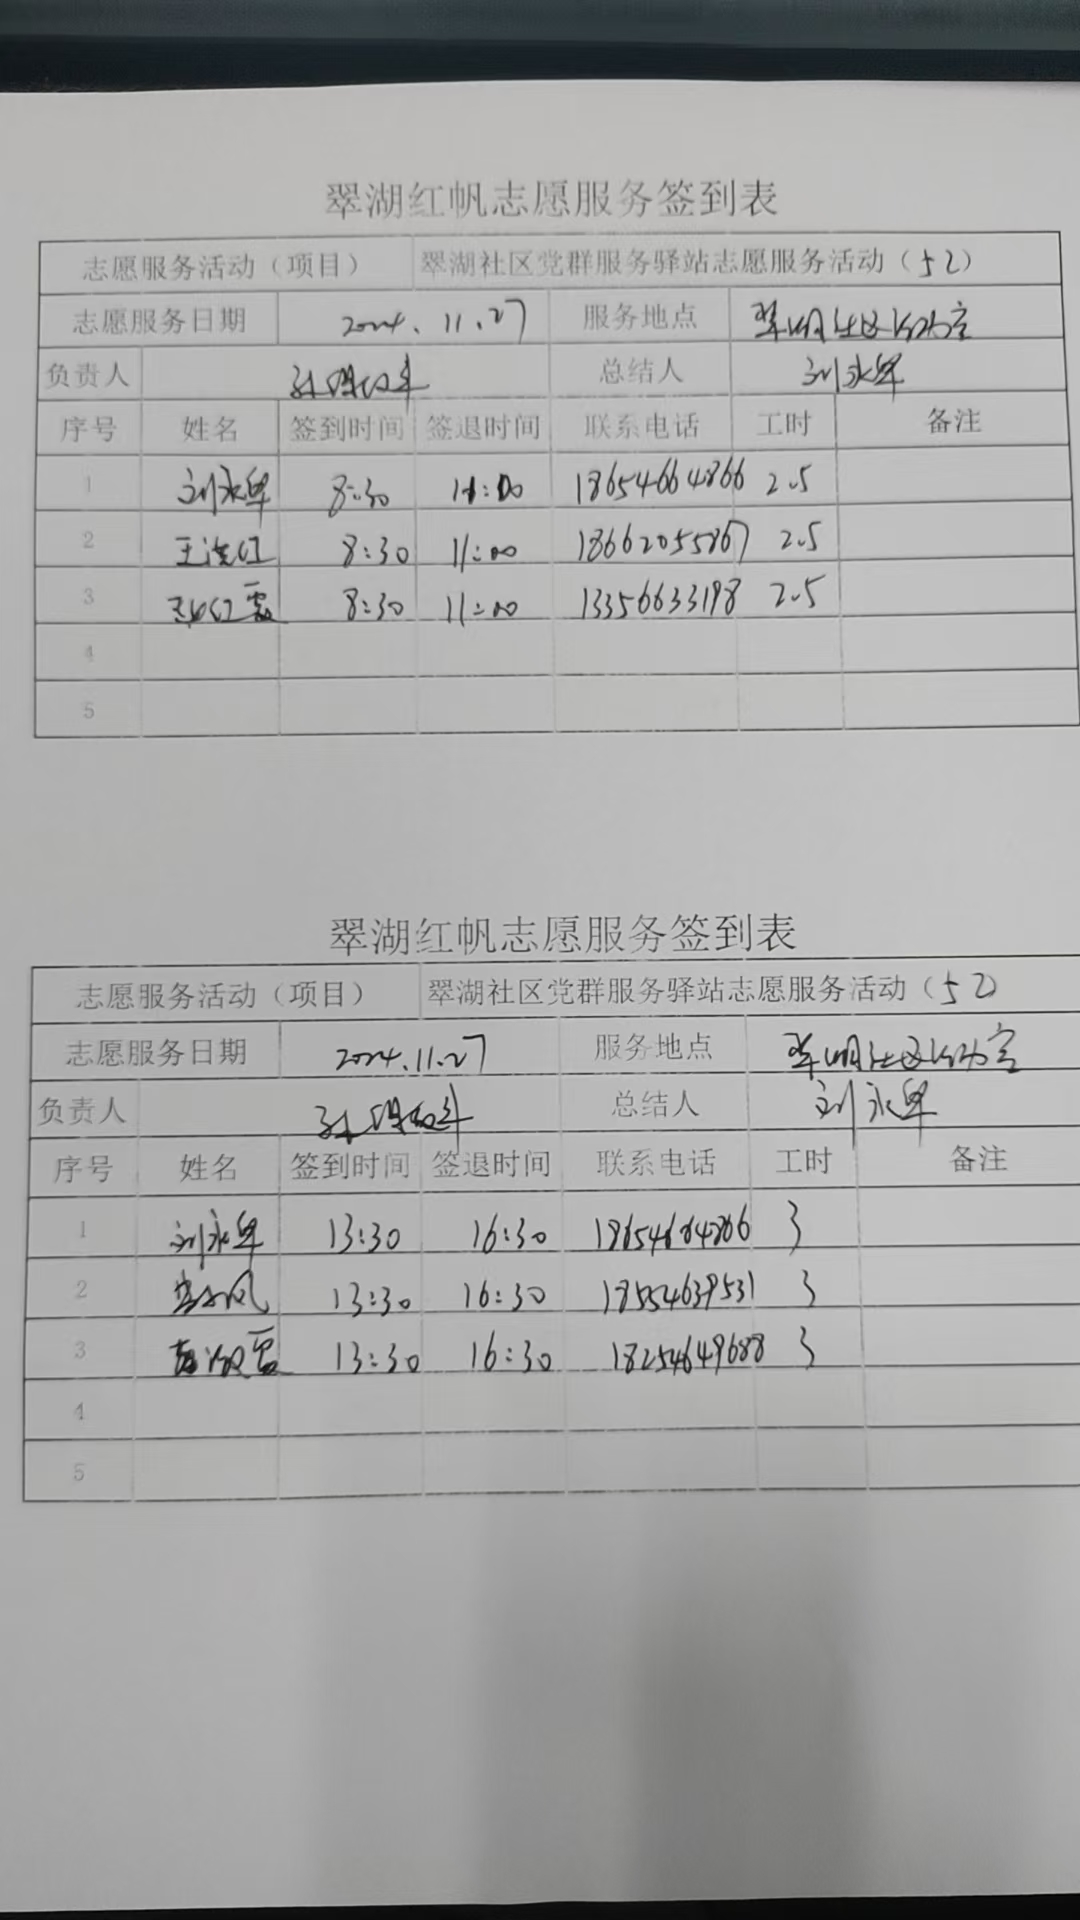 翠湖红帆志愿服务签到表
志愿服务活动（项目） 翠湖社区党群服务驿站志愿服务活动（52）
志愿服务日期 2024.11.27 服务地点 翠湖社区活动室
负责人 总结人 刘永军
序号 姓名 签到时间 签退时间 联系电话 工时 备注
1 刘永军 8:30 11:00 18654664866 2.5
2 8:30 11:00 18662055867 2.5
3 8:30 11:00 13356633198 2.5
4
5
翠湖红帆志愿服务签到表
志愿服务活动（项目） 翠湖社区党群服务驿站志愿服务活动（52）
志愿服务日期 2024.11.27 服务地点 翠湖社区活动室
负责人 总结人 刘永军
序号 姓名 签到时间 签退时间 联系电话 工时 备注
1 刘永军 13:30 16:30 18654664866 3
2 13:30 16:30 18554639531 3
3 13:30 16:30 18254649688 3
4
5